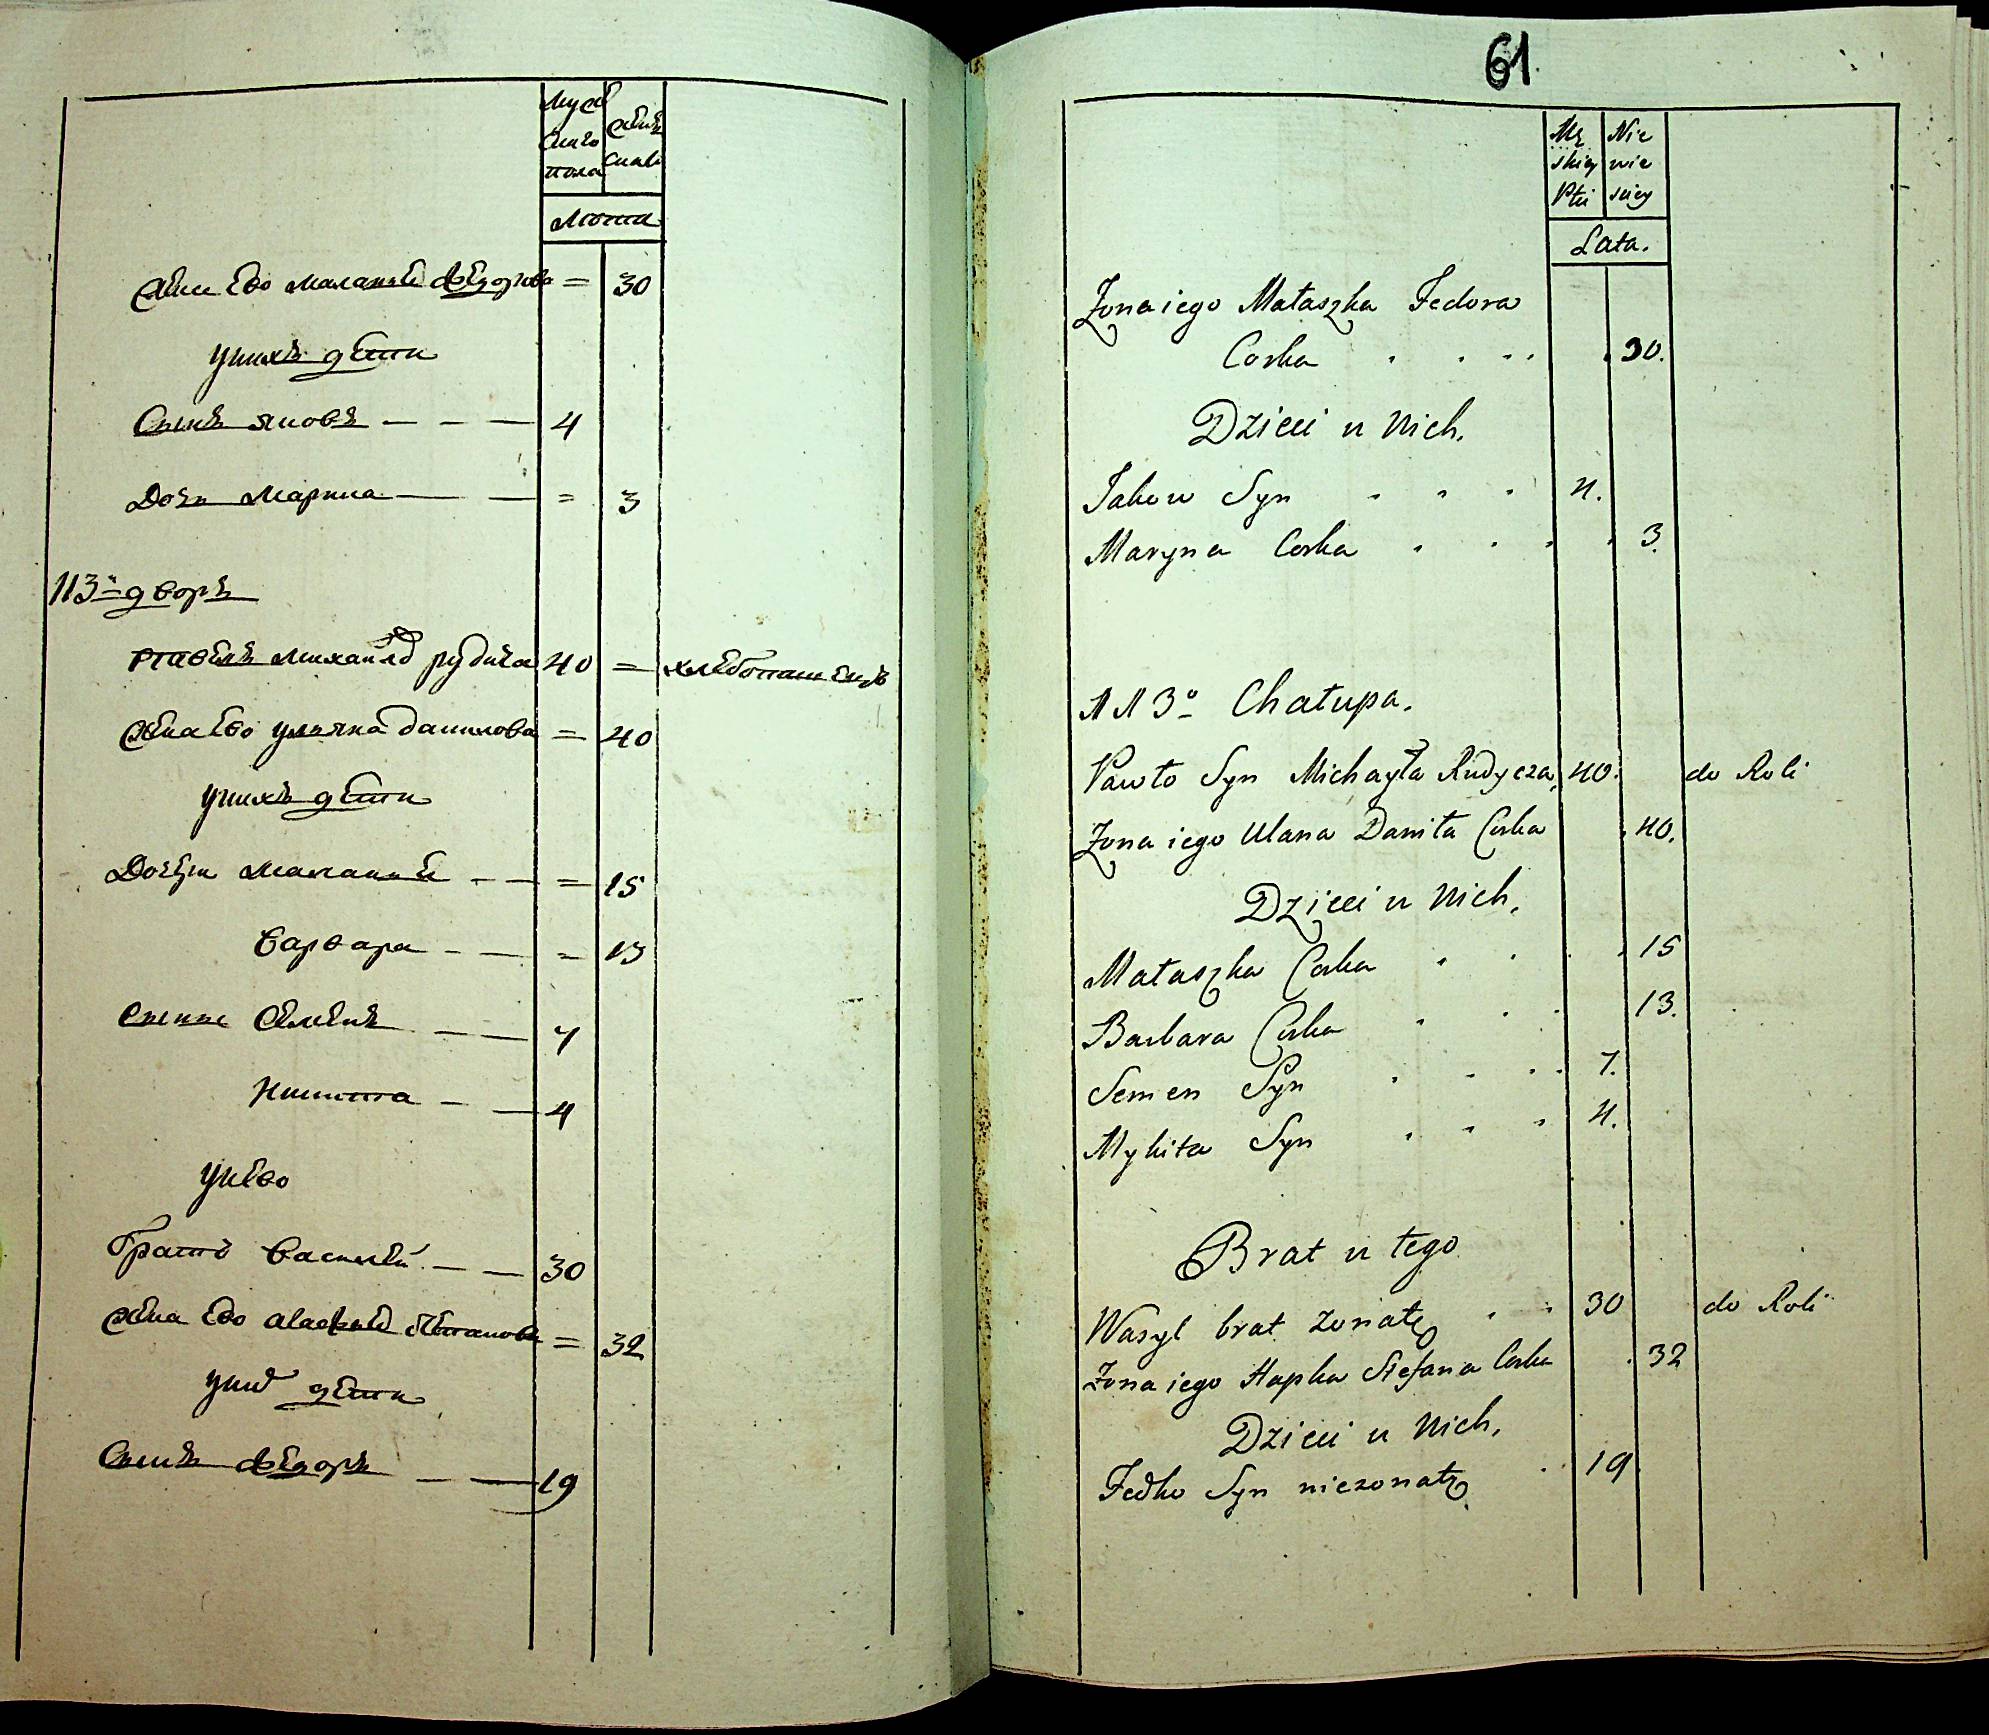 Муж
скаго
пола
женс
скаго
Лота
Жена Ево маланья Федорова = 30
у них дети
Сынъ яковъ — — — 4
Дочь Марина — — = 3
113й дворъ
Павелъ михайлов рудича 40 = хлебопашецъ
жена Ево ульяна данилова = 40
у нихъ дети
Дочери Маланья - — = 15
варвара - — = 13
Сынъе Семенъ — — 7
Никита — — 4
у нево
братъ василей — — 30
жена Ево агафья Степанова = 32
у них дети
Сынъ Федоръ — — 19
61.
Mę
skiey
Płci
Nie
wie
sciey
Lata.
Zona iego Małaszka Fedora
Corka . . . . . 30.
Dzieci u Nich.
Jakow Syn . . . 4.
Maryna Corka . . . . 3.
113o Chałupa.
Pawło Syn Michayła Rudycza 40. do Roli
Zona iego Ulana Daniła Corka . 40.
Dzieci u Nich,
Małaszka Corka . . . . 15
Barbara Corka . . . 13.
Semen Syn . . . . 7.
Mykita Syn . . . 4.
Brat u tego
Wasyl brat zonaty . . 30 do Roli
Zona iego Hapka Stefana Corka . 32
Dzieci u Nich,
Fedko Syn niezonaty . 19